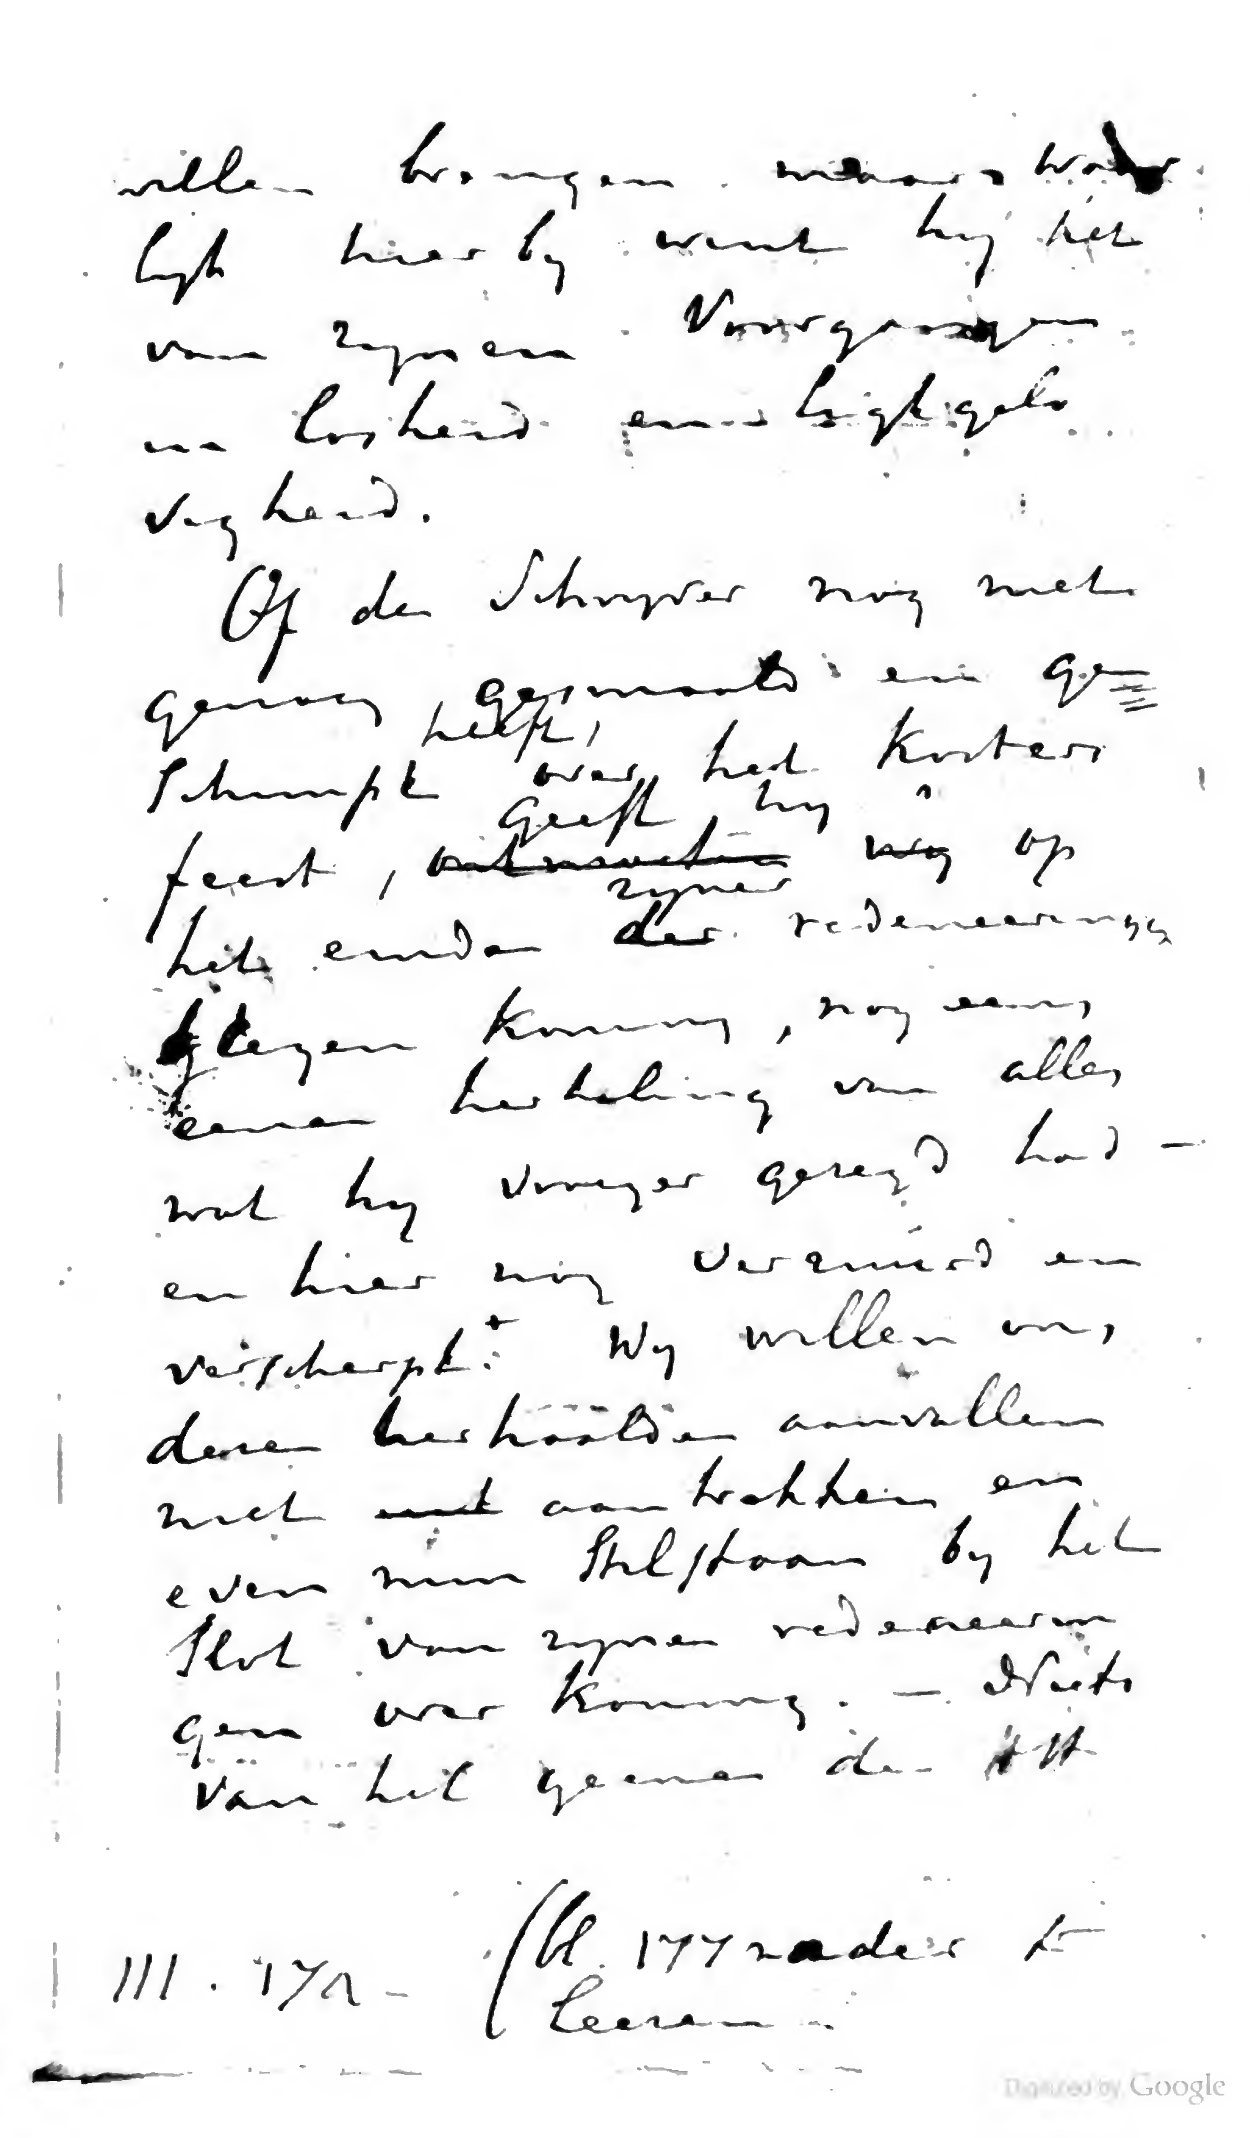 willen brengen. maar waar
lijk hier by wint hy het
van zynen Voorganger
in losheid en ligtgelo
vigheid.
Of de Schryver nog niet
genoeg gesmaald en ge
heeft,
schimpt over het Kosters
geeft hy
feest, op
zyner
het einde der redeneeringen
tegen Koning, nog eens
eene herhaling van alles
wat hy vroeger gezegd had —
en hier nog verzuurd en
verscherpt.+ Wy willen ons
dezen herhaalden aanvallen
niet aantrekken en
even min Stilstaan by het
Slot van zynen redeneerin
gen over Koning. — Niets
van het geene de HH
III. 172 — (bl. 177 nader te
leezen.
Digitized by Google